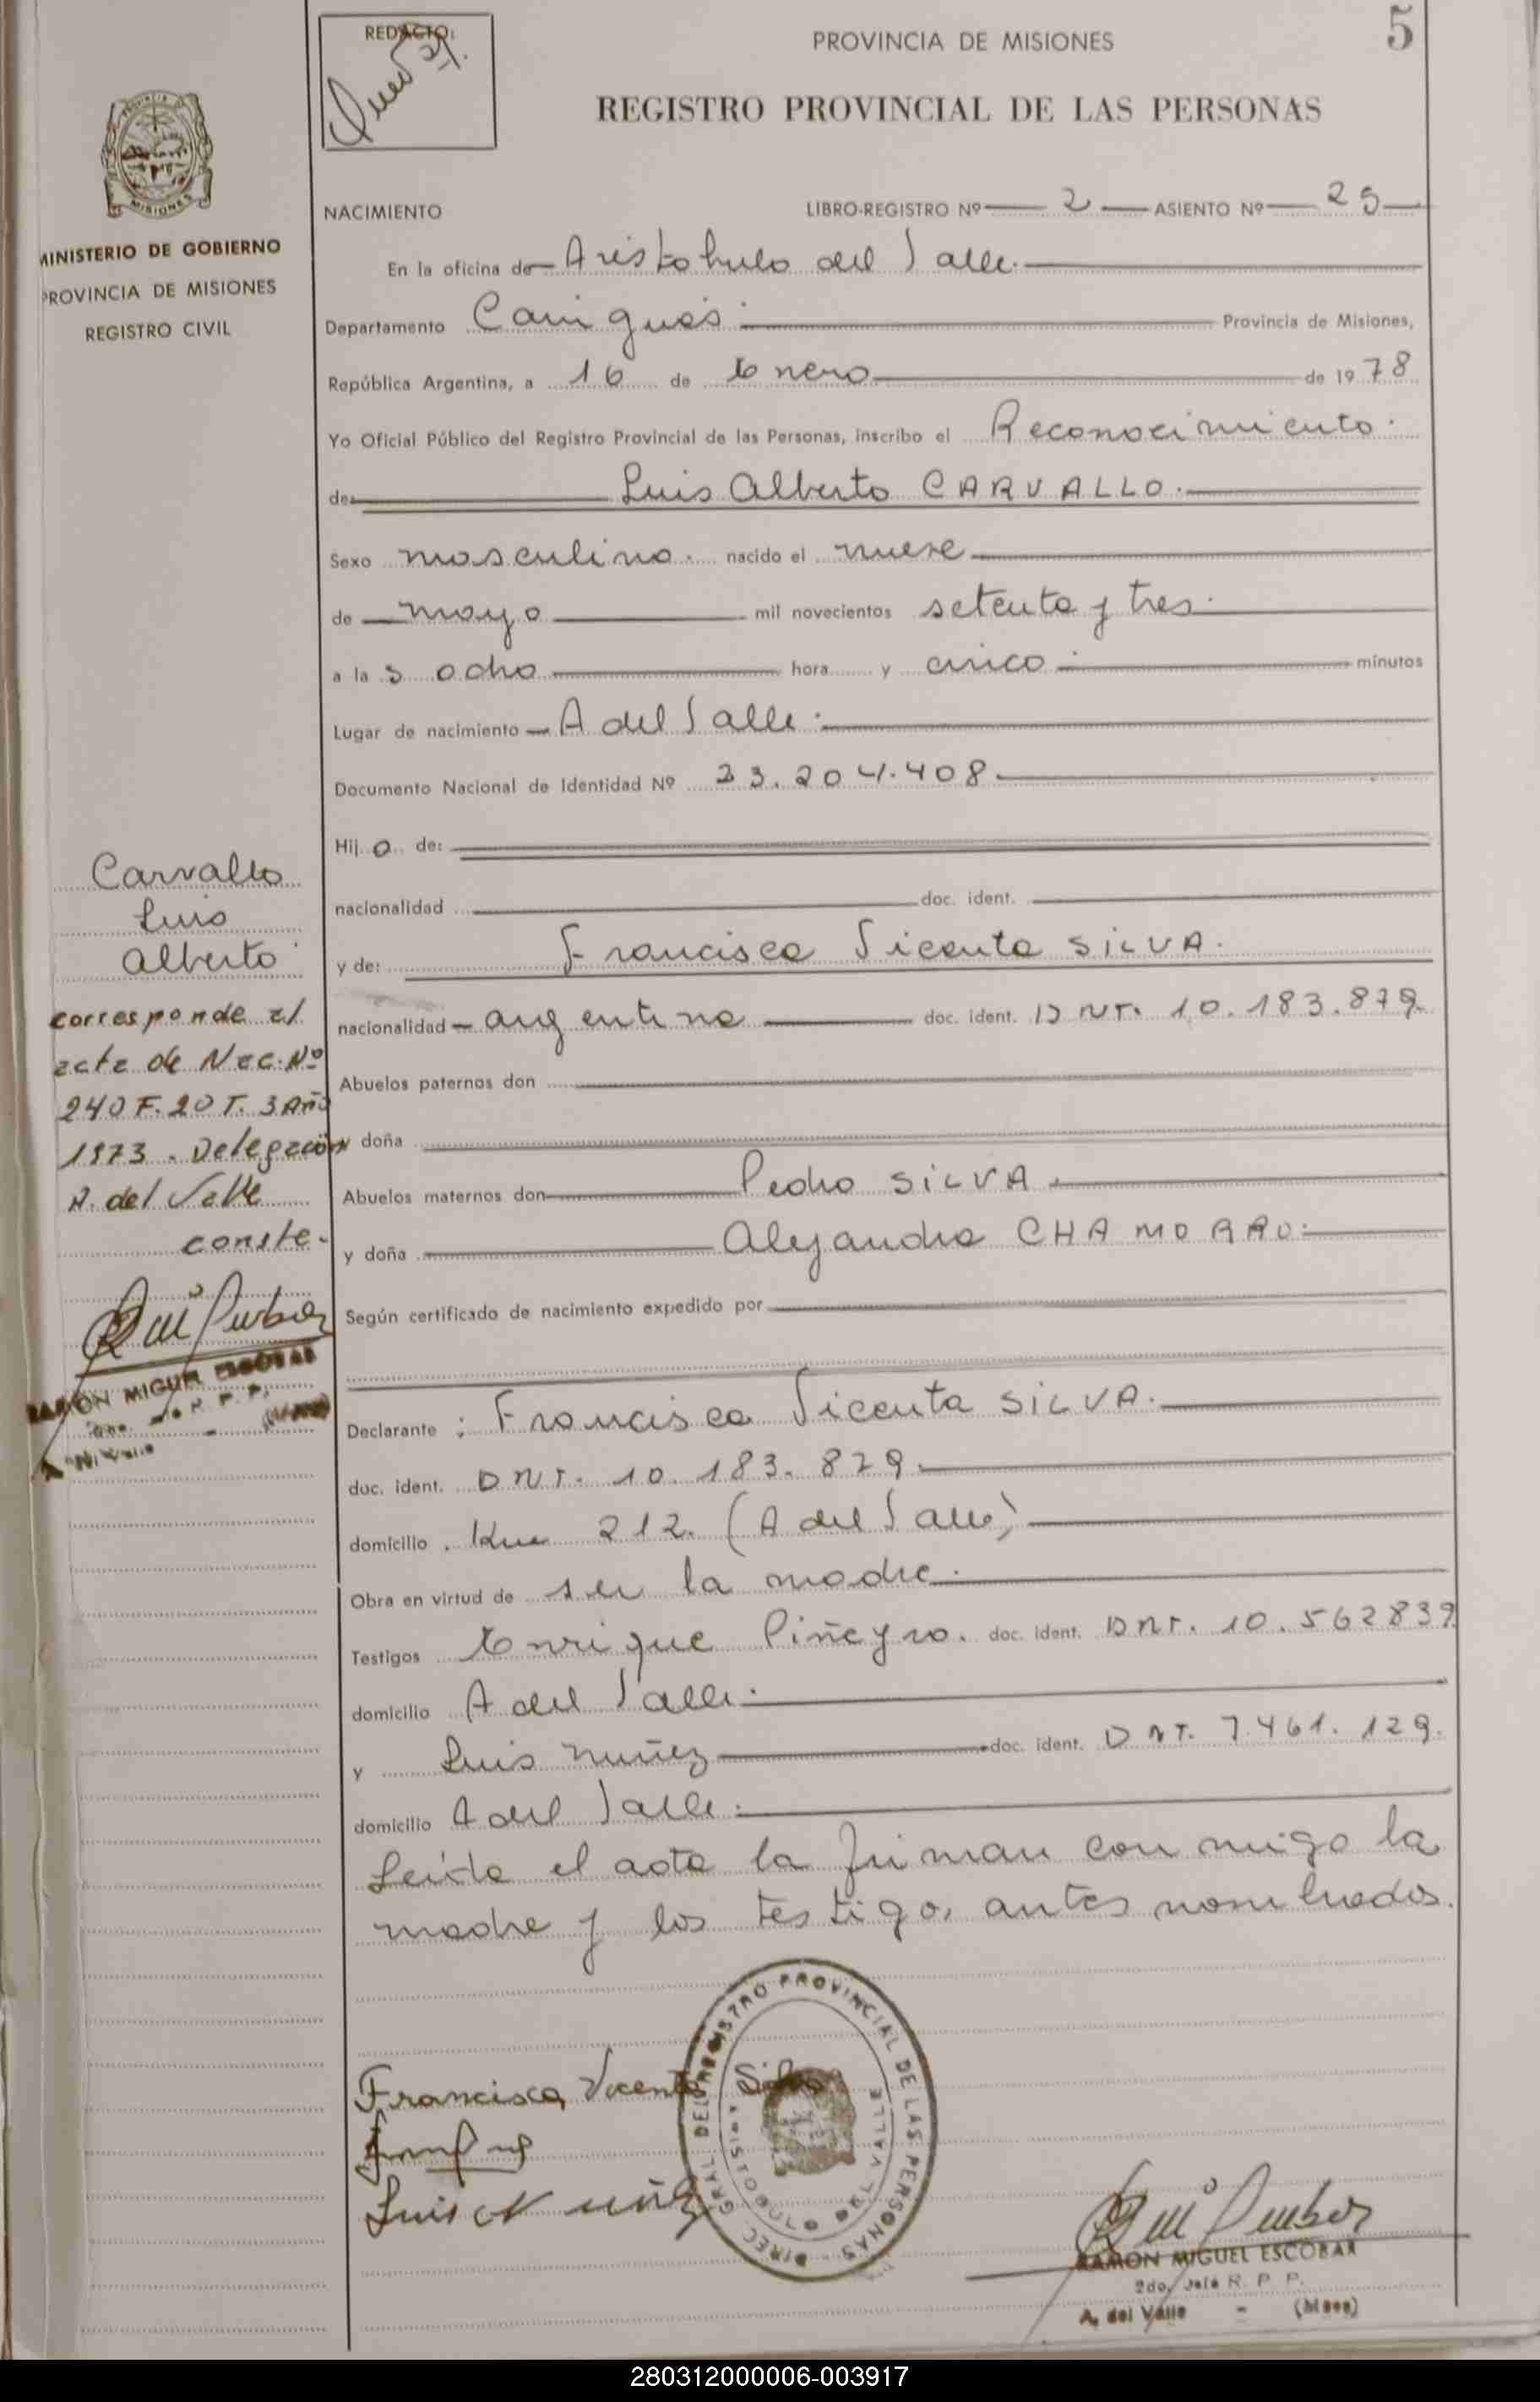 REDACTO:
PROVINCIA DE MISIONES
5
REGISTRO PROVINCIAL DE LAS PERSONAS
MISIONES
MINISTERIO DE GOBIERNO
PROVINCIA DE MISIONES
REGISTRO CIVIL
NACIMIENTO LIBRO-REGISTRO Nº 2 ASIENTO Nº 25
En la oficina de Aristobulo del Valle.
Departamento Cainguás. Provincia de Misiones,
República Argentina, a 16 de Enero de 1978
Yo Oficial Público del Registro Provincial de las Personas, inscribo el Reconocimiento.
de Luis Alberto CARVALLO.
Sexo masculino. nacido el nueve
de mayo mil novecientos setenta y tres.
a las ocho hora y cinco minutos
Lugar de nacimiento A del Valle.
Documento Nacional de Identidad Nº 23.204.408
Hijo de:
nacionalidad doc. ident.
y de: Francisca Vicenta SILVA.
nacionalidad argentina doc. ident. DNI. 10.183.879
Abuelos paternos don
y doña
Abuelos maternos don Pedro SILVA.
y doña Alejandra CHAMORRO.
Según certificado de nacimiento expedido por
Declarante: Francisca Vicenta SILVA.
doc. ident. DNI. 10.183.879
domicilio. Km 212. (A del Valle)
Obra en virtud de ser la madre.
Testigos Enrique Piñeyro. doc. ident. DNI. 10.562839
domicilio A del Valle.
y Luis Nuñez doc. ident. DNI. 7.461.129.
domicilio A del Valle.
Leida el acta la firman conmigo la
madre y los testigos antes nombrados.
Carvallo
Luis
Alberto
corresponde al
acta de Nac. Nº
240 F. 20 T. 3 Año
1973. Delegación
A. del Valle
conste.
RAMON MIGUEL ESCOBAR
Francisca Vicenta Silva
Luis Nuñez
DIREC. GRAL DEL REGISTRO PROVINCIAL DE LAS PERSONAS
ARISTOBULO DEL VALLE
RAMON MIGUEL ESCOBAR
2do. Jefe R. P. P.
A. del Valle - (Mnes)
280312000006-003917